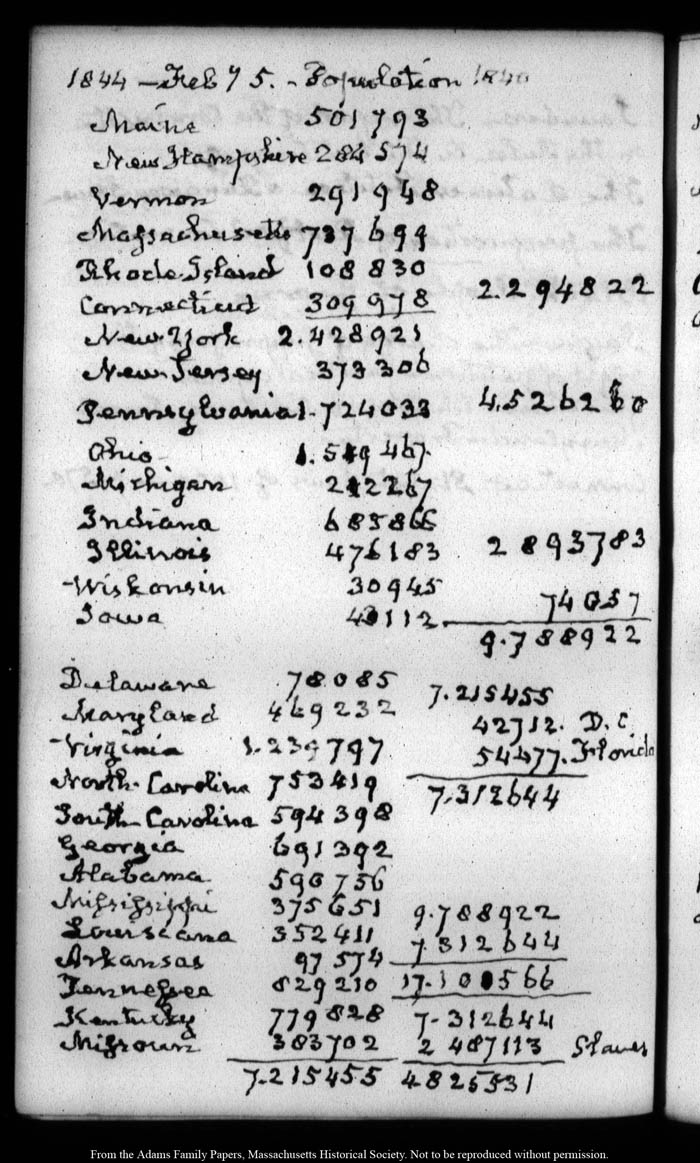 1844 – Feb 7 5. – Population 1840
Maine 501793
New Hampshire 284574
Vermon 291948
Massachusetts 737699
Rhode Island 108830
Connecticut 309978 2.294822
New York 2.428921
New Jersey 373306
Pennsylvania 1.724033 4.526260
Ohio 1.519467.
Michigan 212267
Indiana 685866
Illinois 476183 2893783
Wiskonsin 30945
Iowa 43112. 74057
9.788922
Delaware 78085 7.215455
Maryland 469232 42712. D.C.
Virginia 1.239797 54477. Florida
North Carolina 753419
South Carolina 594398 7.312644
Georgia 691392
Alabama 590756
Missisippi 375651 9.788922
Louisiana 352411 7.312644
Arkansas 97574
Tennessee 829210 17.100566
Kentucky 779828 7.312644
Missouri 383702 2487113 Slaves
7.215455 4825531
From the Adams Family Papers, Massachusetts Historical Society. Not to be reproduced without permission.